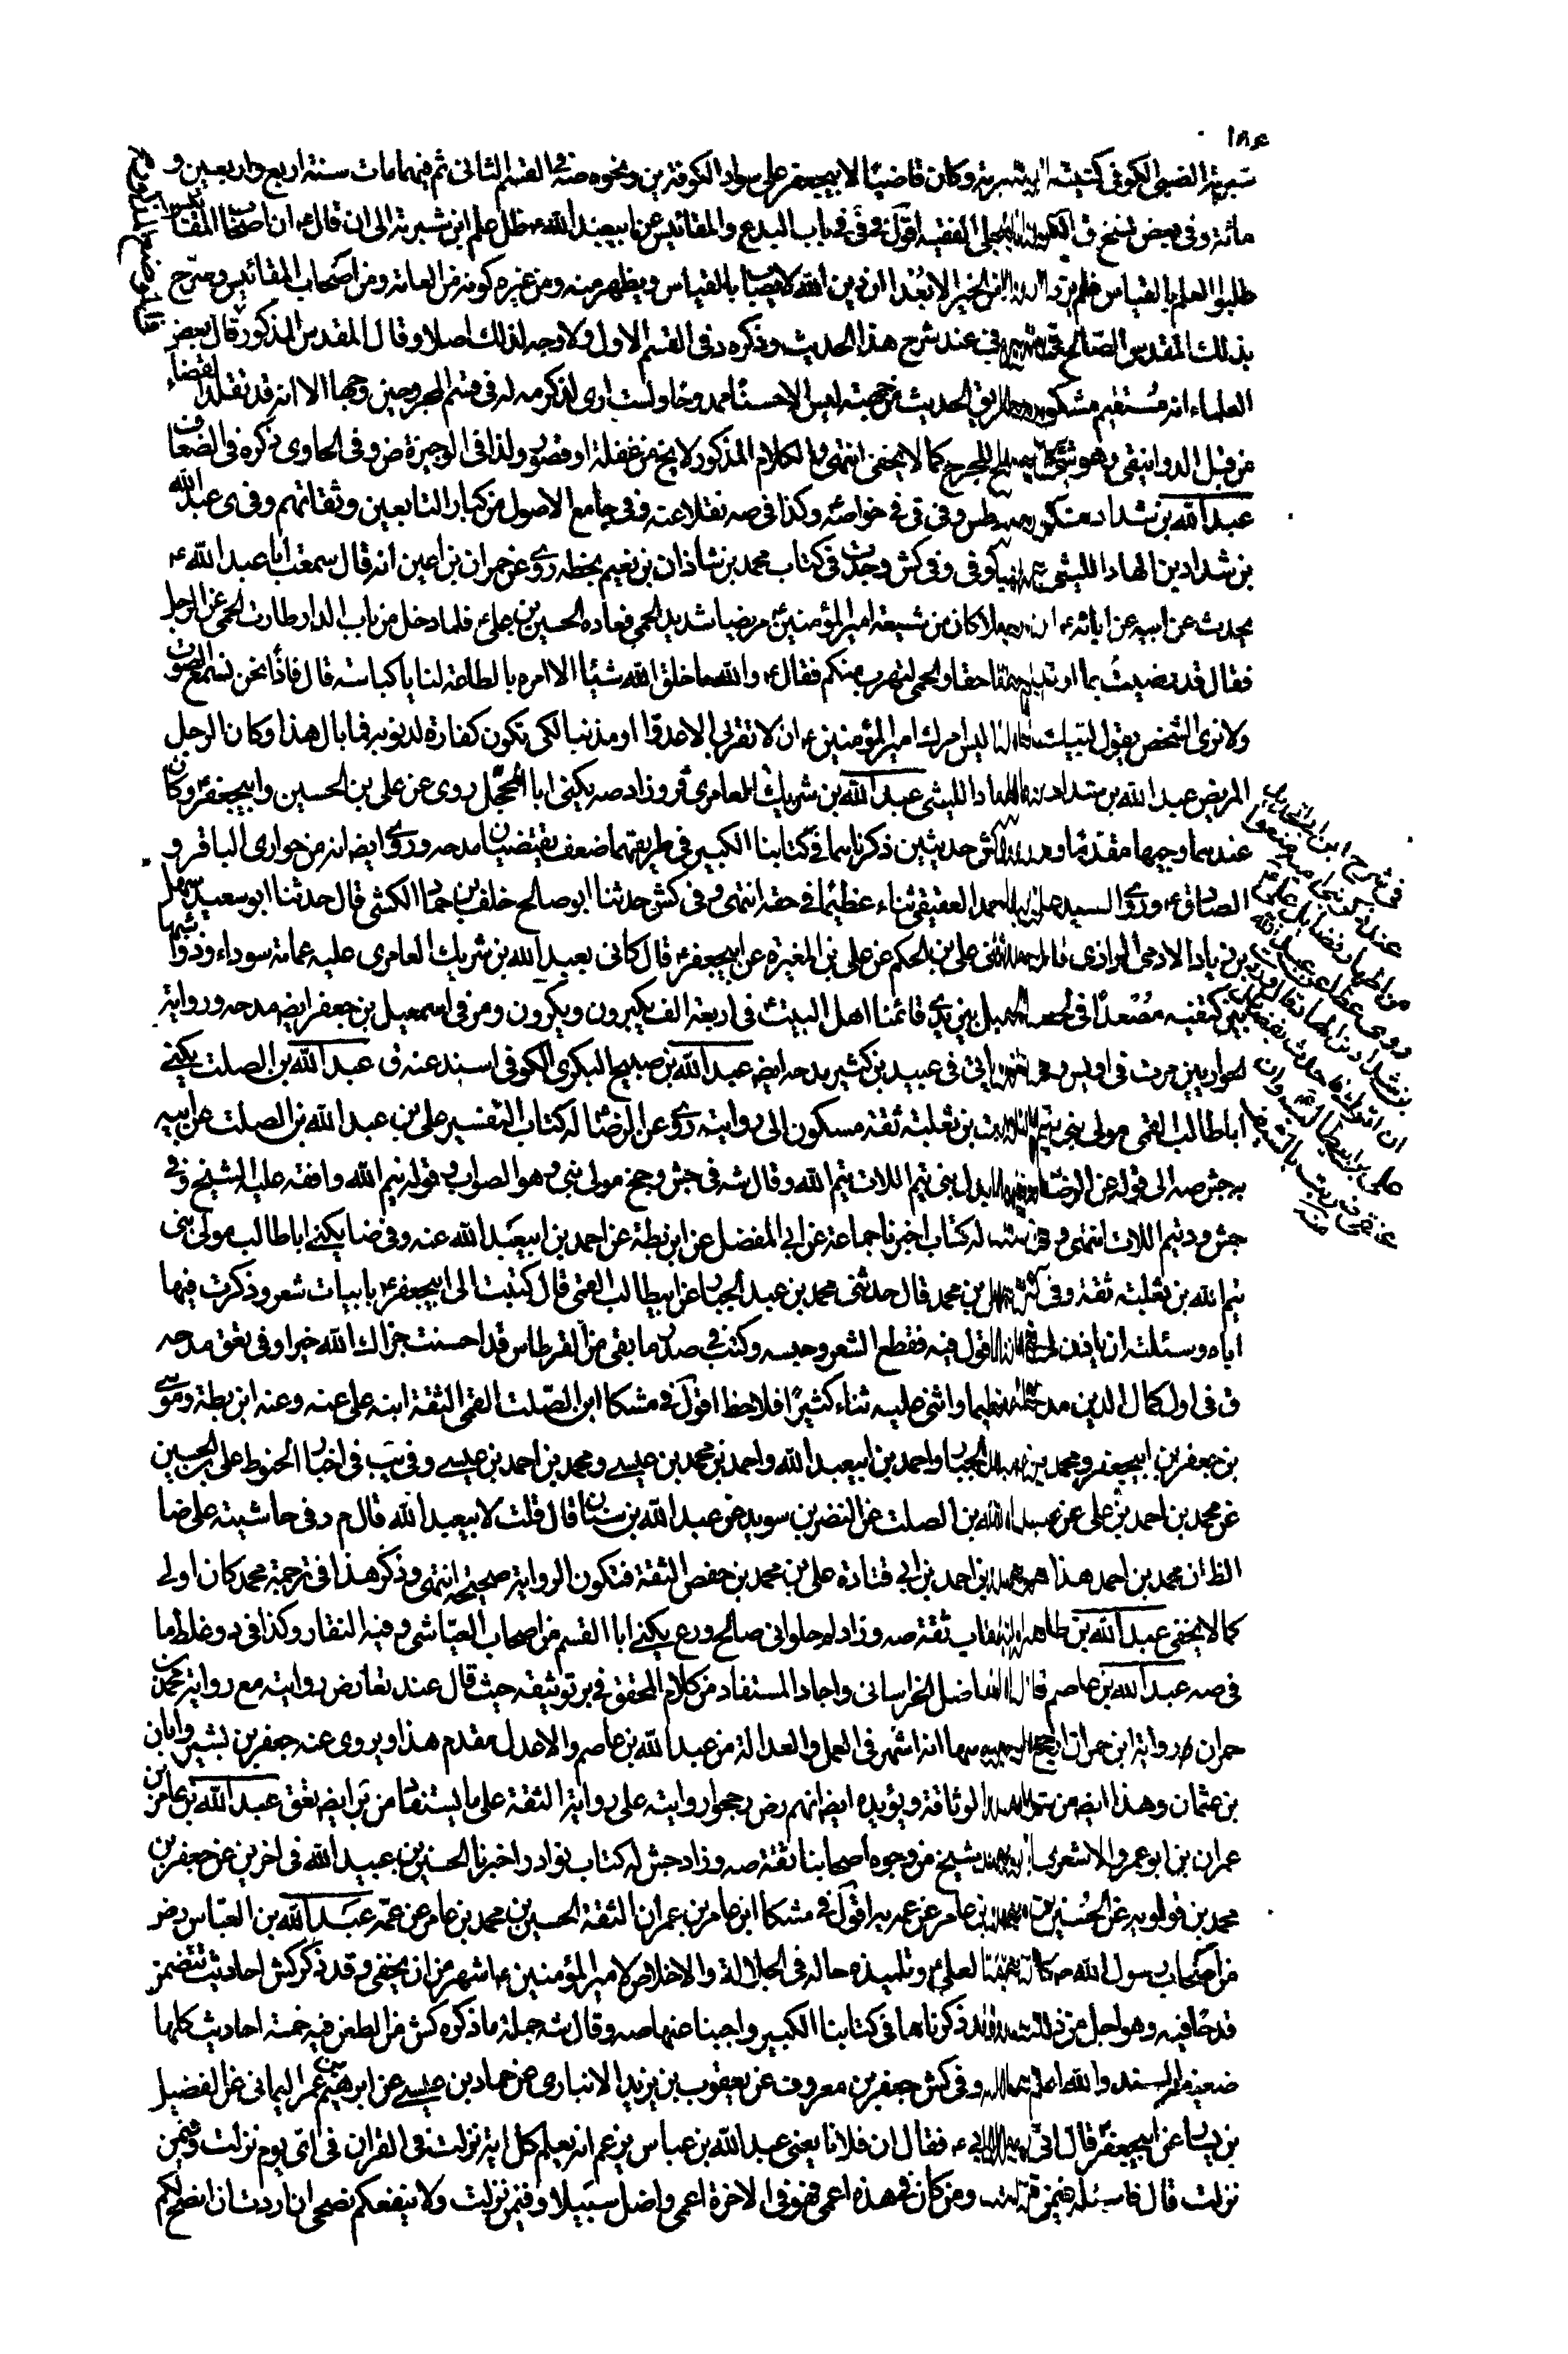 ١٨٤
شبرمة الضبى الكوفى كنيته ابو شبرمة وكان قاضيا لابيجعفر على سواد الكوفة ين ونحوه صه فى القسم الثانى ثم فيهما مات سنة اربع واربعين و
مائة وفى بعض نسخ ق الكوفى البجلى الفقيه اقول فى فى باب البدع والمقائيس عن ابيعبد الله ع ضل علم ابن شبرمة الى ان قال ع ان اصحاب المقائيس
طلبوا العلم بالقياس فلم يزدادوا من الخير الا بعدا ان دين الله لا يصاب بالقياس ويظهر منه ومن غيره كونه من العامة ومن اصحاب المقائيس وصرح
بذلك المقدس الصالح فى عند شرح هذا الحديث وذكره د فى القسم الاول ولا وجه لذلك اصلا وقال المقدس المذكور قال بعض
العلماء انه مستقيم مشكور وطريق الحديث من جهته ليس الا حسنا ممدوحا ولست ارى لذكر مه له فى قسم المجروحين وجها الا انه قد تقلد القضاء
من قبل الدوانيقى وهو شئ لا يصلح للجرح كما لا يخفى انتهى والكلام المذكور لا يخ من غفلة او قصور ولذا فى الوجيزة ض وفى الحاوى ذكره فى الضعاف
عبد الله بن شداد مشكور وفى قى فى خواصه وكذا فى صه نقلا عنه وفى جامع الاصول من كبار التابعين وثقاتهم وفى ى عبد الله
بن شداد بن الهاد الليثى كوفى وفى كش وجدت فى كتاب محمد بن شاذان بن نعيم بخطه روى عن حمران بن اعين انه قال سمعت ابا عبد الله ع
يحدث عن ابيه عن ابائه ع ان رجلا كان من شيعة امير المؤمنين ع مريضا شديد الحمى فعاده الحسين بن على ع فلما دخل من باب الدار طارت الحمى عن الرجل
فقال قد رضيت بما اوتيتم حقا حقا والحمى لتهرب منكم فقال ع والله ما خلق الله شيئا الا امره بالطاعة لنا يا كباسة قال فاذا نحن نسمع الصوت
ولا نرى الشخص يقول لبيك قال اليس امرك امير المؤمنين ع ان لا تقربى الا عدوا او مذنبا لكى تكون كفارة لذنوبه فما بال هذا وكان الرجل
المريض عبد الله بن شداد بن الهاد الليثى عبد الله بن شريك العامرى قر وزاد صه يكنى ابا المحجل روى عن على بن الحسين وابيجعفر ع وكان
عندهما وجيها مقدما وروى كش حديثين ذكرناهما فى كتابنا الكبير فى طريقهما ضعف يقتضيان مدحه وروى ايض انه من حوارى الباقر و
الصادق ع وروى السيد على بن احمد العقيقى ثناء عظيما فى حقه انتهى وفى كش حدثنا ابو صالح خلف بن حماد الكشى قال حدثنا ابو سعيد سهل
بن زياد الادمى الرازى قال حدثنى على بن الحكم عن على بن المغيرة عن ابيجعفر ع قال كانى بعبد الله بن شريك العامرى عليه عمامة سوداء وذوابتها
بين كتفيه مصعدا فى لحف الجبل بين يدى قائمنا اهل البيت ع فى اربعة الف يكبرون ويكرون ومر فى اسمعيل بن جعفر ايض مدحه ورواية
الحواريين مرت فى اويس وياتى فى عبيد بن كثير مدحه ايض عبد الله بن صبيح البكرى الكوفى اسند عنه ق عبد الله بن الصلت يكنى
ابا طالب القمى مولى بنى تيم اللات بن ثعلبة ثقة مسكون الى روايته روى عن الرضا ع له كتاب التفسير على بن عبد الله بن الصلت عن ابيه
به جش صه الى قوله عن الرضا ع وفيها بدل بنى تيم اللات تيم الله وقال شه فى جش وجخ مولى بنى وهو الصواب وقوله تيم الله وافقه عليه الشيخ وفى
جش ود تيم اللات انتهى وفى ست له كتاب اخبرنا جماعة عن ابى المفضل عن ابن بطة عن احمد بن ابيعبد الله عنه وفى ضا يكنى ابا طالب مولى بنى
تيم الله بن ثعلبة ثقة وفى كش على بن محمد قال حدثنى محمد بن عبد الجبار عن ابيطالب القمى قال كتبت الى ابيجعفر ع بابيات شعر وذكرت فيها
اباه وسئلته ان ياذن لى فى ان اقول فيه فقطع الشعر وحبسه وكتب فى صدر ما بقى من القرطاس قد احسنت جزاك الله خيرا وفى تعق مدحه
ق فى اول كمال الدين مدحا عظيما واثنى عليه ثناء كثيرا فلاحظ اقول فى مشكا ابن الصلت القمى الثقة ابنه على عنه وعنه ابن بطة وموسى
بن جعفر بن ابيجعفر ومحمد بن عبد الجبار واحمد بن ابيعبد الله واحمد بن محمد بن عيسى ومحمد بن احمد بن عيسى وفى يب فى اخبار الحنوط على بن الحسين
عن محمد بن احمد بن على عن عبد الله بن الصلت عن النضر بن سويد عن عبد الله بن سنان قال قلت لابيعبد الله قال م د فى حاشيته على ضا
الظ ان محمد بن احمد هذا هو محمد بن احمد بن ابى قتادة على بن محمد بن حفص الثقة فتكون الرواية صحيحة انتهى وذكر هذا فى ترجمة محمد كان اولى
كما لا يخفى عبد الله بن طاهر ثقة صه وزاد لم حلوانى صالح ورع يكنى ابا القسم من اصحاب العياشى وفيه النقار وكذا فى د وغلط ما
فى صه عبد الله بن عاصم قال الفاضل الخراسانى واجاد المستفاد من كلام المحقق فى بر توثيقه حيث قال عند تعارض روايته مع رواية محمد بن
حمران ورواية ابن حمران ارجح لوجوه منها انه اشهر فى العمل والعدالة من عبد الله بن عاصم والاعدل مقدم هذا ويروى عنه جعفر بن بشير وابان
بن عثمان وهذا ايض من الوثاقة ويؤيده ايض انهم رض رجحوا روايته على رواية الثقة على ما يستفاد من بر ايض تعق عبد الله بن عامر بن
عمران بن ابو عمرو الاشعرى ابو محمد شيخ من وجوه اصحابنا ثقة صه وزاد جش له كتاب نوادر اخبرنا الحسين بن عبيد الله فى اخرين عن جعفر بن
محمد بن قولويه عن الحسين بن محمد بن عامر عن عمه به اقول فى مشكا ابن عامر بن عمران الثقة الحسين بن محمد بن عامر عن عمه عبد الله بن العباس رض
من اصحاب رسول الله ص كان محبا لعلى ع وتلميذه حاله فى الجلالة والاخلاص لامير المؤمنين ع اشهر من ان يخفى وقد ذكر كش احاديث تتضمن
قدحا فيه وهو اجل من ذلك وقد ذكرناها فى كتابنا الكبير واجبنا عنها صه وقال شه جملة ما ذكره كش من الطعن فيه خمسة احاديث كلها
ضعيفة السند والله اعلم بحاله وفى كش جعفر بن معروف عن يعقوب بن يزيد الانبارى عن حماد بن عيسى عن ابرهيم بن عمر اليمانى عن الفضيل
بن يسار عن ابيجعفر ع قال اتى رجل ابى ع فقال ان فلانا يعنى عبد الله بن عباس يزعم انه يعلم كل اية نزلت فى القران فى اى يوم نزلت وفيمن
نزلت قال فاسئله فيمن نزلت ومن كان فى هذه اعمى فهو فى الاخرة اعمى واضل سبيلا وفيم نزلت ولا ينفعكم نصحى ان اردت ان انصح لكم